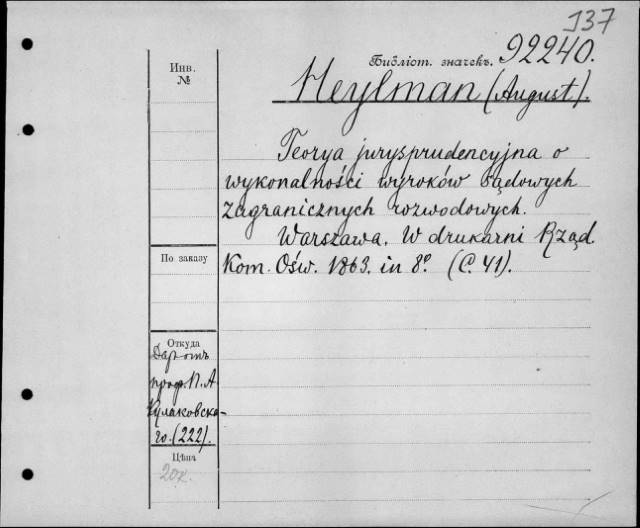 137
Библіот. значекъ. 92240.
Инв.
№
Heylman (August).
Teorya jurysprudencyjna o
wykonalności wyroków sądowych
zagranicznych rozwodowych.
Warszawa. W drukarni Rząd.
Kom. Ośw. 1863. in 8º. (C. 41).
По заказу
Откуда
Даръ отъ
проф. П. А.
Кулаковска-
го. (222).
Цѣна
20к.